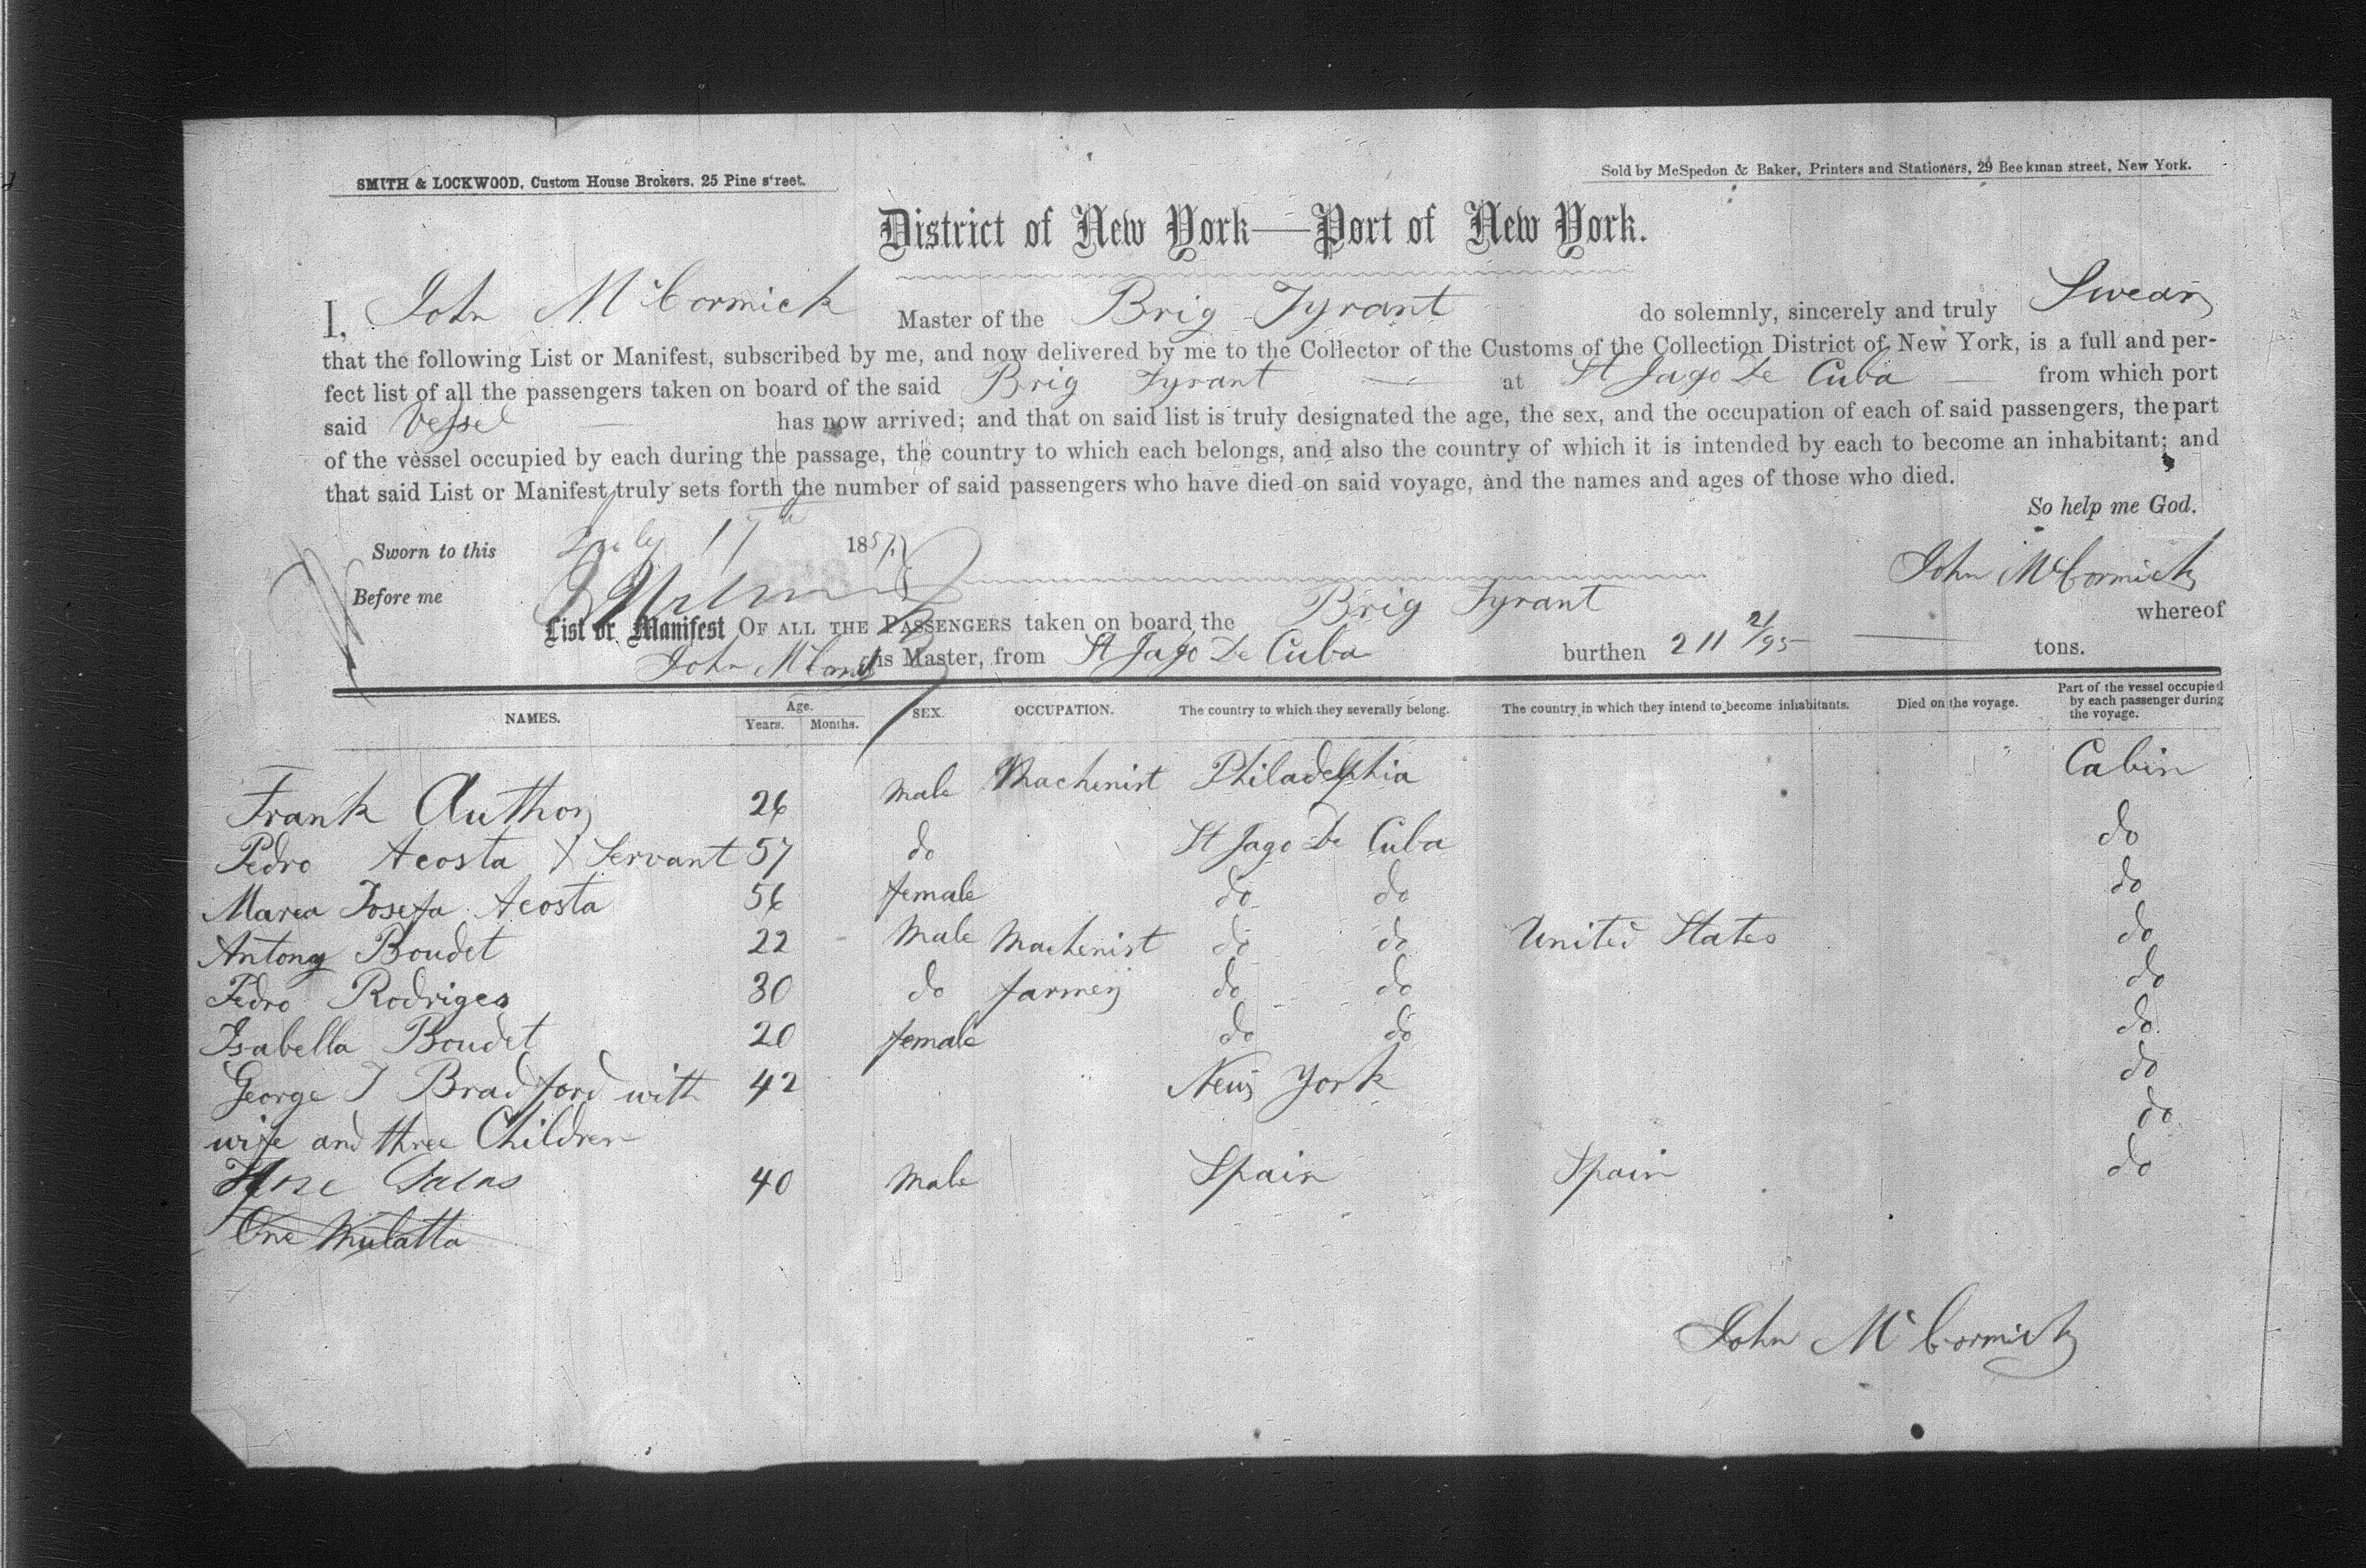 SMITH & LOCKWOOD, Custom House Brokers. 25 Pine s'reet.
Sold by McSpedon & Baker, Printers and Stationers, 29 Beekman street, New York.
District of New York—Port of New York.
I, John McCormick Master of the Brig Tyrant do solemnly, sincerely and truly Swear
that the following List or Manifest, subscribed by me, and now delivered by me to the Collector of the Customs of the Collection District of New York, is a full and per-
fect list of all the passengers taken on board of the said Brig Tyrant at St Jago De Cuba from which port
said Vessel has now arrived; and that on said list is truly designated the age, the sex, and the occupation of each of said passengers, the part
of the vessel occupied by each during the passage, the country to which each belongs, and also the country of which it is intended by each to become an inhabitant; and
that said List or Manifest truly sets forth the number of said passengers who have died on said voyage, and the names and ages of those who died.
So help me God.
Sworn to this July 17th 1857
John McCormick
Before me
List or Manifest OF ALL THE PASSENGERS taken on board the Brig Tyrant whereof
John McCormick is Master, from St Jago De Cuba burthen 211 21/95 tons.
NAMES. Age. Years. Months. SEX. OCCUPATION. The country to which they severally belong. The country in which they intend to become inhabitants. Died on the voyage. Part of the vessel occupied by each passenger during the voyage.
Frank Author 26 male Machenist Philadelphia Cabin
Pedro Acosta & Servant 57 do St Jago De Cuba do
Marea Josefa Acosta 56 female do do do
Antony Boudet 22 Male Machenist do do United States do
Pedro Rodriges 30 do farmer do do do
Isabella Boudet 20 female do do do
George T Bradford with 42 New York do
wife and three Children do
Jose 40 Male Spain Spain do
One Mulatta
John McCormick